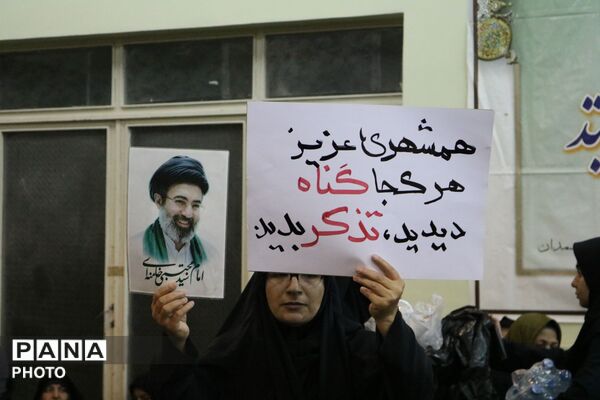 همشهری عزیز
هر کجا گناه
دیدید، تذکر بدید.
امام سید مجتبی خامنه‌ای
همدان
PANA
PHOTO